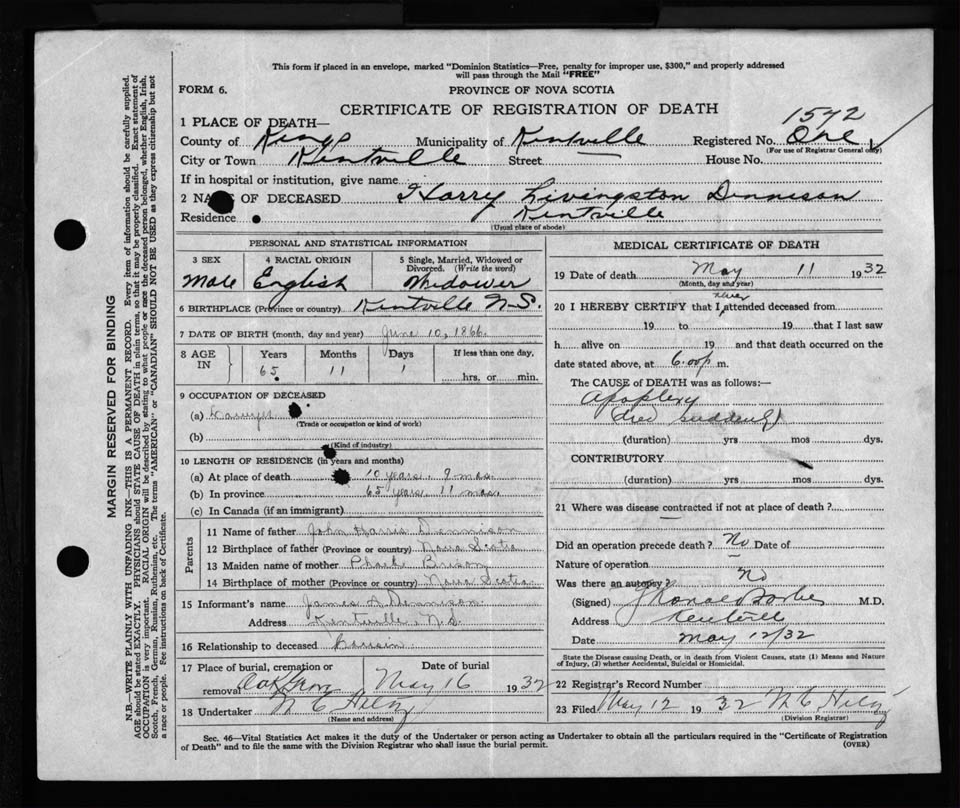 This form if placed in an envelope, marked "Dominion Statistics—Free, penalty for improper use, $300," and properly addressed
will pass through the Mail "FREE"
FORM 6.
PROVINCE OF NOVA SCOTIA
CERTIFICATE OF REGISTRATION OF DEATH
1572
1 PLACE OF DEATH—
County of Kings Municipality of Kentville Registered No. One
(For use of Registrar General only)
City or Town Kentville Street House No.
If in hospital or institution, give name
2 NAME OF DECEASED Harry Livingston Dennison
Residence Kentville
(Usual place of abode)
PERSONAL AND STATISTICAL INFORMATION
3 SEX
Male
4 RACIAL ORIGIN
English
5 Single, Married, Widowed or
Divorced. (Write the word)
Widower
6 BIRTHPLACE (Province or country) Kentville N.S.
7 DATE OF BIRTH (month, day and year) June 10, 1866.
8 AGE
IN
Years Months Days If less than one day,
65 11 1 hrs. or min.
9 OCCUPATION OF DECEASED
(a) Lawyer
(Trade or occupation or kind of work)
(b)
(Kind of industry)
10 LENGTH OF RESIDENCE (in years and months)
(a) At place of death years. 9 mos.
(b) In province 65 years. 11 mos.
(c) In Canada (if an immigrant)
Parents
11 Name of father John Harris Dennison
12 Birthplace of father (Province or country) Nova Scotia
13 Maiden name of mother Phoebe
14 Birthplace of mother (Province or country) Nova Scotia
15 Informant's name James A Dennison
Address Kentville, N.S.
16 Relationship to deceased Cousin.
17 Place of burial, cremation or Date of burial
removal Oak Grove May 16 1932
18 Undertaker
(Name and address)
MEDICAL CERTIFICATE OF DEATH
19 Date of death May 11 1932
(Month, day and year)
20 I HEREBY CERTIFY that I never attended deceased from
19 to 19 that I last saw
h alive on 19 and that death occurred on the
date stated above, at 6.00 p m.
The CAUSE of DEATH was as follows:—
Apoplexy
(died suddenly)
(duration) yrs mos dys.
CONTRIBUTORY
(duration) yrs mos dys.
21 Where was disease contracted if not at place of death?
Did an operation precede death? No Date of
Nature of operation
Was there an autopsy? No
(Signed) M.D.
Address Kentville
Date May 12/32
State the Disease causing Death, or in death from Violent Causes, state (1) Means and Nature
of Injury, (2) whether Accidental, Suicidal or Homicidal.
22 Registrar's Record Number
23 Filed May 12 1932
(Division Registrar)
Sec. 46—Vital Statistics Act makes it the duty of the Undertaker or person acting as Undertaker to obtain all the particulars required in the "Certificate of Registration
of Death" and to file the same with the Division Registrar who shall issue the burial permit.
(OVER)
MARGIN RESERVED FOR BINDING
N.B.—WRITE PLAINLY WITH UNFADING INK—THIS IS A PERMANENT RECORD. Every item of information should be carefully supplied.
AGE should be stated EXACTLY. PHYSICIANS should STATE CAUSE OF DEATH in plain terms, so that it may be properly classified. Exact statement of
OCCUPATION is very important. RACIAL ORIGIN will be described by stating to what people or race the deceased person belonged, whether English, Irish,
Scotch, French, German, Russian, Ruthenian, etc. The terms "AMERICAN" or "CANADIAN" SHOULD NOT BE USED as they express citizenship but not
a race or people. See instructions on back of Certificate.